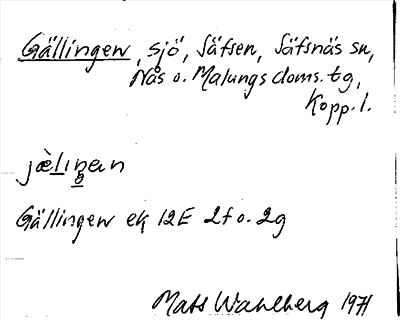 Gällingen, sjö, Säfsen, Säfsnäs sn,
Nås o. Malungs doms. tg,
Kopp. l.
jæ̀lıŋən
Gällingen ek 12E 2f o. 2g
Mats Wahlberg 1971